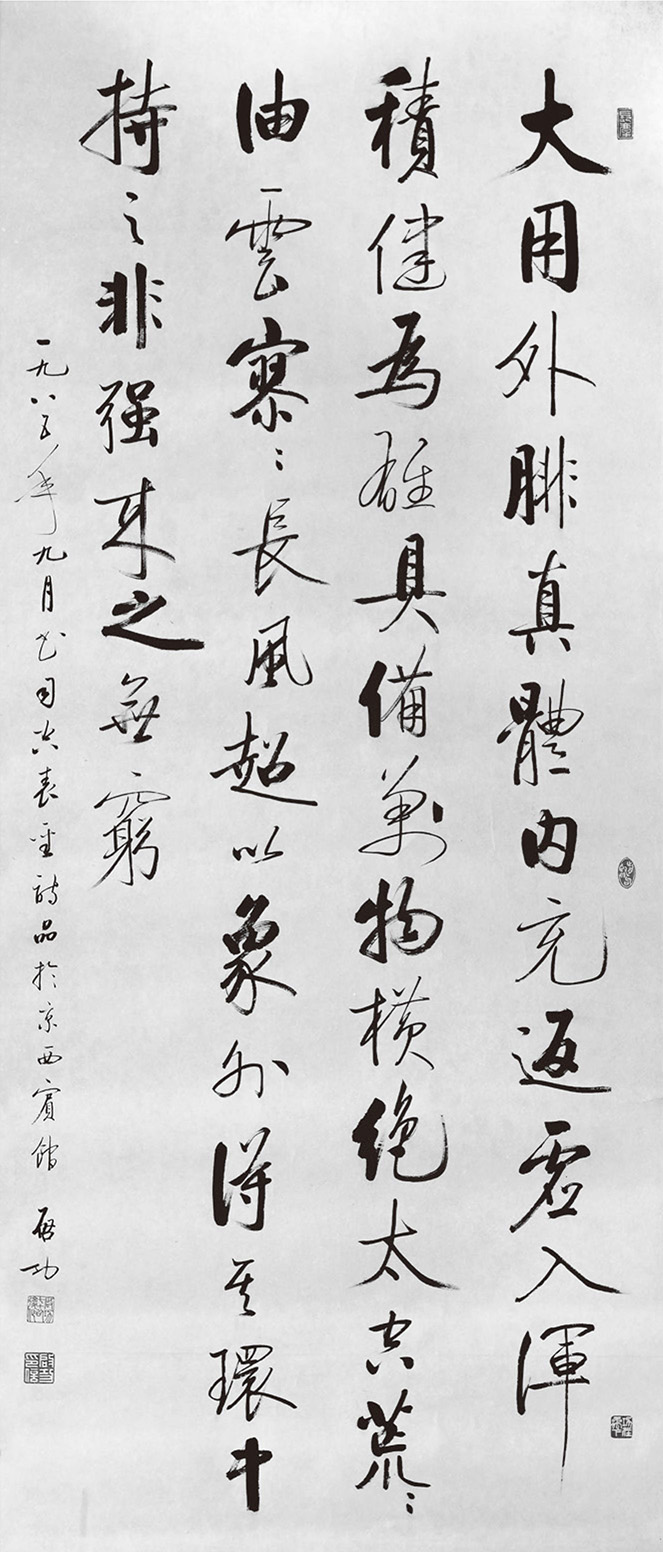 大用外腓真體内充返虛入渾
積健為雄具備萬物横絶太空荒〻
油雲寥〻長風超以象外得其環中
持之非强来之無窮
一九八五年九月書司空表聖詩品於京西賓館 啟功